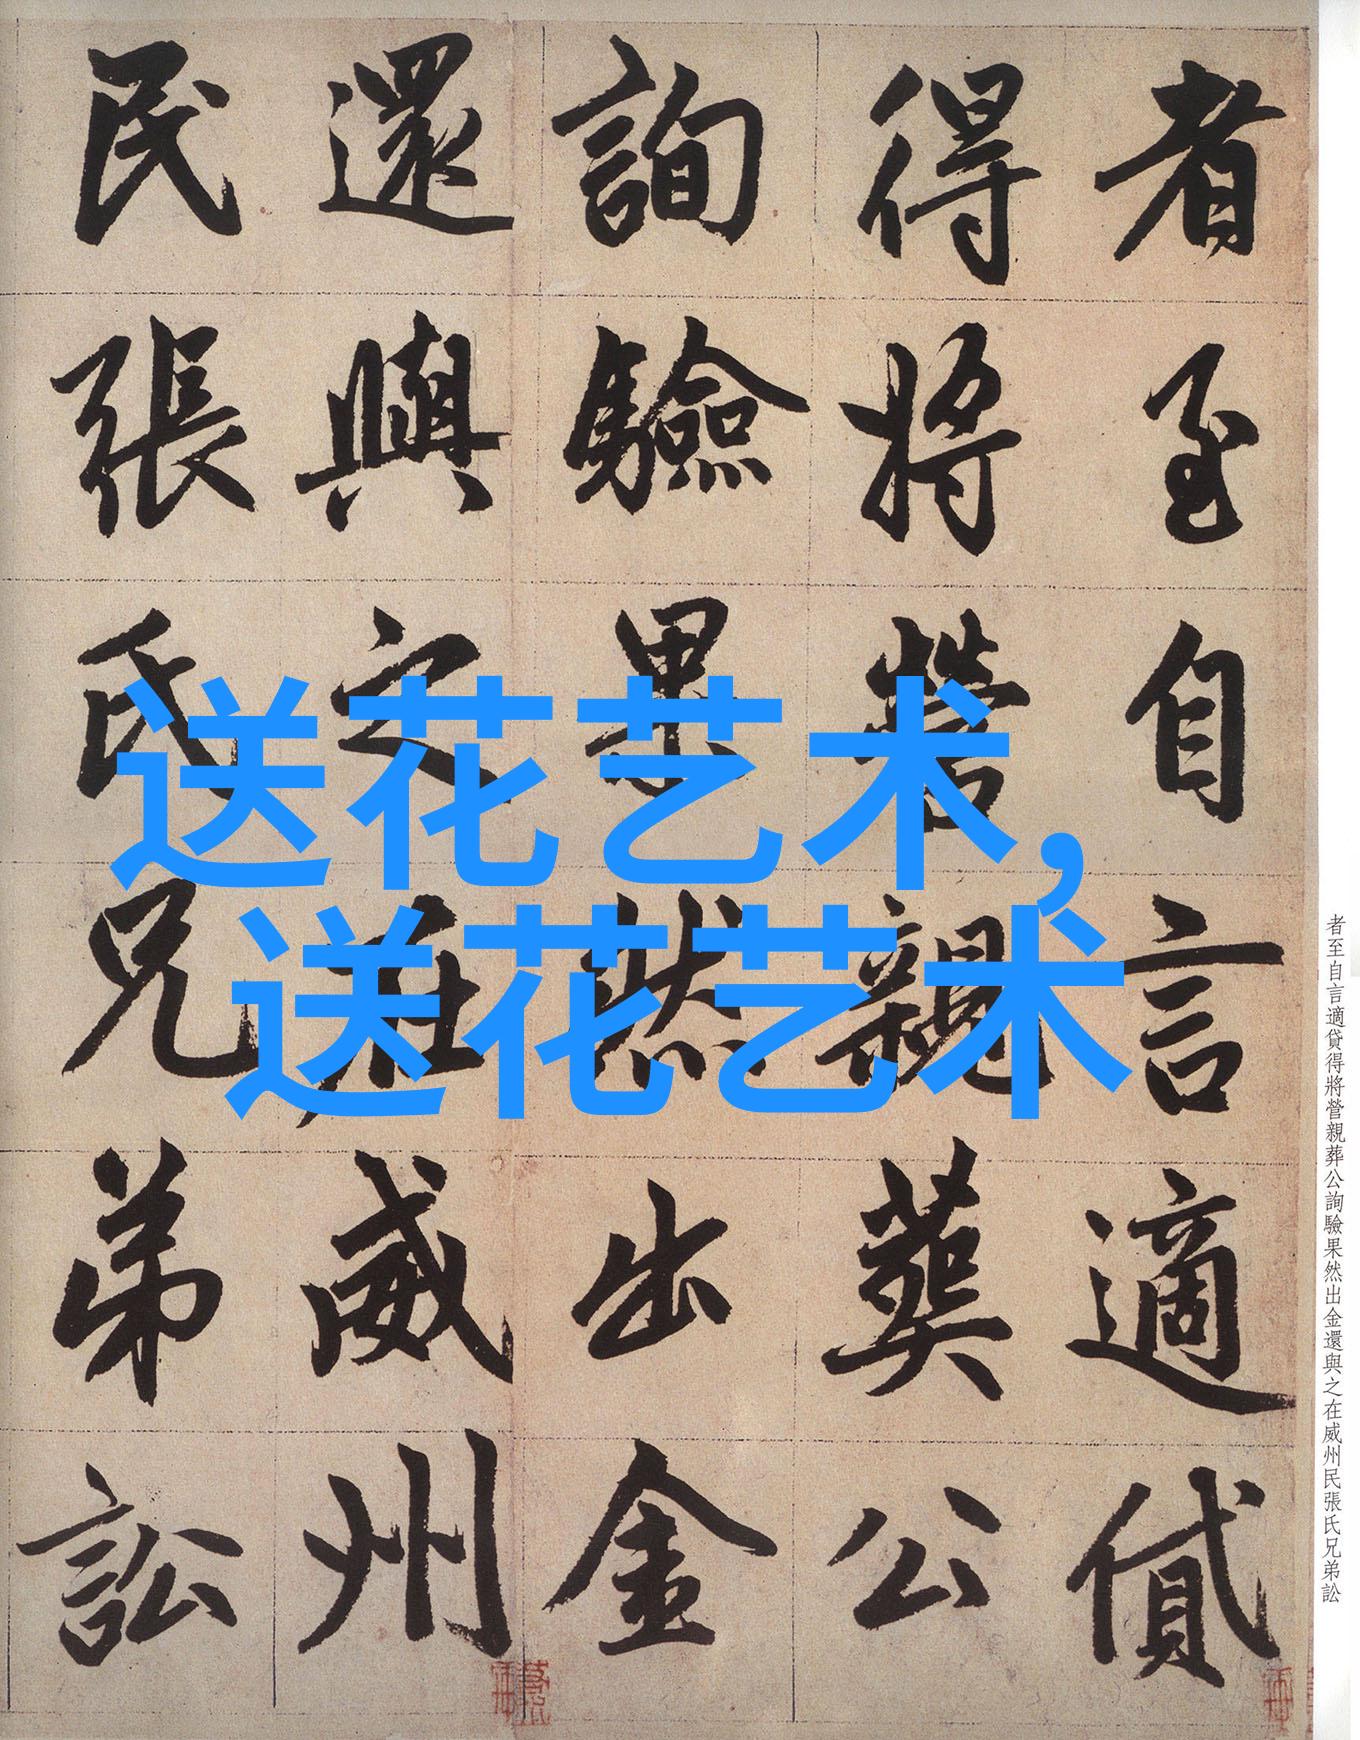 者至自言適貸
得將營親葬公
詢驗果然出金
還與之在威州
民張氏兄弟訟
送花艺术,
送花艺术
者至自言適貸得將營親葬公詢驗果然出金還與之在威州民張氏兄弟訟